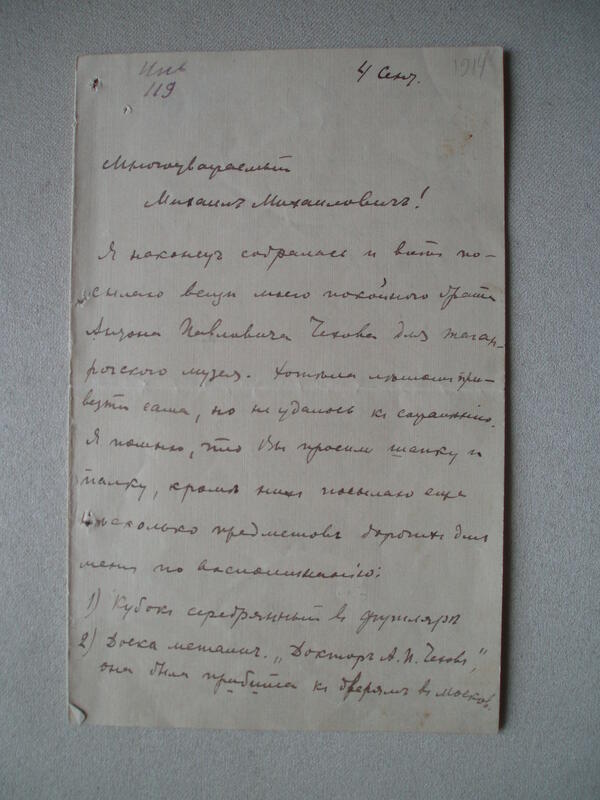 Инв
119
4 Сент.
1914
Многоуважаемый
Михаилъ Михайловичъ!
Я наконецъ собралась и вотъ по-
сылаю вещи моего покойного брата
Антона Павловича Чехова для таган-
рогского музея. Хотѣла при-
везти сама, но не удалось къ сожалѣнію.
Я помню, что Вы просили шапку и
палку, кромѣ нихъ посылаю еще
нѣсколько предметовъ дорогихъ для
меня по воспоминанію:
1) Кубокъ серебрянный въ футлярѣ
2) Доска металич. „Докторъ А. П. Чеховъ",
она была прибита къ дверямъ въ Москов.